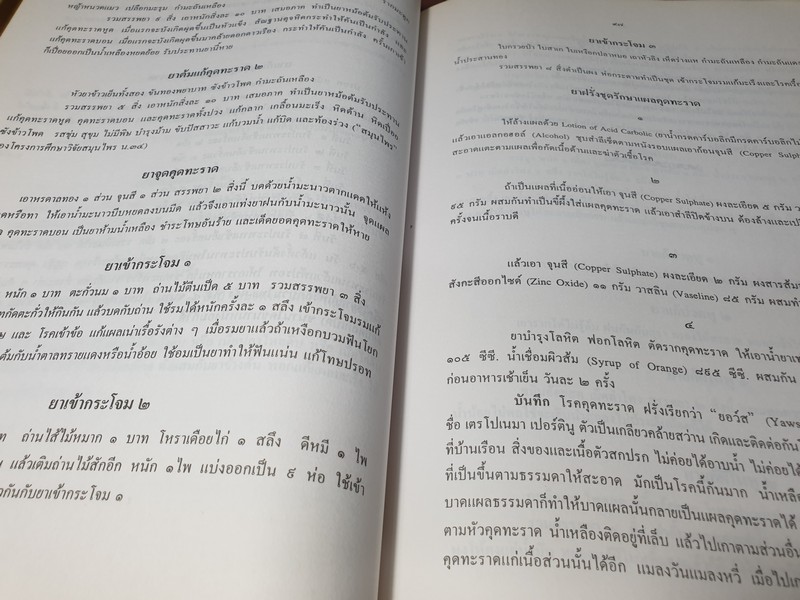 หญ้าหนวดแมว เปลือกมะรุม กำมะถันเหลือง
รวมสรรพยา ๙ สิ่ง เอาหนักสิ่งละ ๑๐ บาท เสมอภาค ทำเป็นยาหม้อต้มรับประทาน
แก้คุดทะราดบอน เมื่อแรกจะบังเกิดผุดขึ้นมาคล้ายดอกดาวเรือง กระทำให้คันเป็นกำลัง ครั้นเกาเข้า
ก็เปื่อยออกเป็นน้ำเหลืองหยดย้อย รับประทานยานี้หาย
ยาต้มแก้คุดทะราด ๒
หัวยาข้าวเย็นทั้งสอง ขันทองพยาบาท ซังข้าวโพด กำมะถันเหลือง
รวมสรรพยา ๕ สิ่ง เอาหนักสิ่งละ ๑๐ บาท เสมอภาค ทำเป็นยาหม้อต้มรับประทาน
แก้คุดทะราดหูด คุดทะราดบอน และคุดทะราดทั้งปวง แก้กลาก เกลื้อนมะเร็ง หิดด้าน หิดเปื่อย
ซังข้าวโพด รสชุ่ม สุขุม ไม่มีพิษ บำรุงม้าม ขับปัสสาวะ แก้บวมน้ำ แก้บิด และท้องร่วง ("สมุนไพร"
ของโครงการศึกษาวิจัยสมุนไพร น.๓๔)
ยาจูดคุดทะราด
เอาหรดาลทอง ๑ ส่วน จุนสี ๑ ส่วน สรรพยา ๒ สิ่งนี้ บดด้วยน้ำมะนาวตากแดดให้แห้ง
หรือทา ให้เอาน้ำมะนาวบีบหยดลงบนมีด แล้วจึงเอาแท่งยาฝนกับน้ำมะนาวนั้น จูดแผล
คุดทะราดบอน เป็นยาห้ามน้ำเหลือง ชำระโทษอันร้าย และเด็ดยอดคุดทะราดให้หาย
ยาเข้ากระโจม ๑
หนัก ๑ บาท ตะกั่วนม ๑ บาท ถ่านไม้ตีนเป็ด ๕ บาท รวมสรรพยา ๓ สิ่ง
กัดตะกั่วให้กินกัน แล้วบดกับถ่าน ใช้รมได้หนักครั้งละ ๑ สลึง เข้ากระโจมรมแก้
และ โรคเข้าข้อ แก้แผลเน่าเรื้อรังต่าง ๆ เมื่อรมยาแล้วถ้าเหงือกบวมฟันโยก
ต้มกับน้ำตาลทรายแดงหรือน้ำอ้อย ใช้อมเป็นยาทำให้ฟันแน่น แก้โทษปรอท
ยาเข้ากระโจม ๒
ถ่านไส้ไม้หมาก ๑ บาท โหราเดือยไก่ ๑ สลึง ดีหมี ๑ ไพ
แล้วเติมถ่านไม้สักอีก หนัก ๑ไพ แบ่งออกเป็น ๙ ห่อ ใช้เข้า
กันกับยาเข้ากระโจม ๑
ยาเข้ากระโจม ๓
รวมสรรพยา ๘ สิ่งต้มเป็นผง
ยาฝรั่งชุดรักษาแผลคุดทะราด
๑
ให้ล้างแผลด้วย Lotion of Acid Carbolic
แล้วเอาแอลกอฮอล์ (Alcohol) ชุบสำลีเช็ดตามหนังรอบแผลเอาก้อนจุนสี (Copper Sulphate)
สะอาดแตะตามแผลเพื่อกัดเนื้อด้านและฆ่าตัวเชื้อโรค
๒
ถ้าเป็นแผลที่เนื้ออ่อนให้เอา จุนสี (Copper Sulphate) ผงละเอียด ๕ กรัม
๙๕ กรัม ผสมกันทำเป็นขี้ผึ้งใส่แผลคุดทะราด แล้วเอาสำลีปิดข้างบน ต้องล้าง
ครั้งจนเนื้อราบดี
๓
แล้วเอา จุนสี (Copper Sulphate) ผงละเอียด ๒ กรัม ผงสารส้ม
สังกะสีออกไซด์ (Zinc Oxide) ๑๑ กรัม วาสลิน (Vaseline) ๘๕ กรัม ผสม
๔
ยาบำรุงโลหิต ฟอกโลหิต ตัดรากคุดทะราด ให้เอาน้ำยา
๑๐๕ ซีซี. น้ำเชื่อมผิวส้ม (Syrup of Orange) ๘๙๕ ซีซี. ผสมกัน
ก่อนอาหารเช้าเย็น วันละ ๒ ครั้ง
บันทึก โรคคุดทะราด ฝรั่งเรียกว่า "ยอว์ส" (Yaws
ชื่อ เตรโปเนมา เปอร์ตินู ตัวเป็นเกลียวคล้ายสว่าน เกิดและติดต่อกัน
ที่บ้านเรือน สิ่งของและเนื้อตัวสกปรก ไม่ค่อยได้อาบน้ำ ไม่ค่อยได้
ที่เป็นขึ้นตามธรรมดาให้สะอาด มักเป็นโรคนี้กันมาก น้ำเหลือง
บาดแผลธรรมดาก็ทำให้บาดแผลนั้นกลายเป็นแผลคุดทะราดได้
ตามหัวคุดทะราด น้ำเหลืองติดอยู่ที่เล็บ แล้วไปเกาตามส่วนอื่น
คุดทะราดแก่เนื้อส่วนนั้นได้อีก แมลงวันแมลงหวี่ เมื่อไป